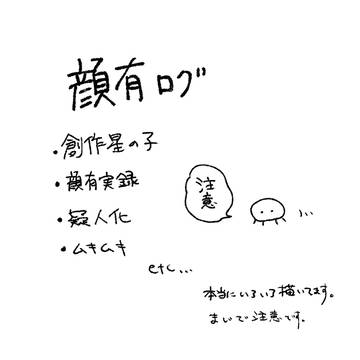 顔有ログ
・創作星の子
・顔有実録
・疑人化
・ムキムキ
etc...
注意
...
本当にいろいろ描いてます。
まじで注意です。